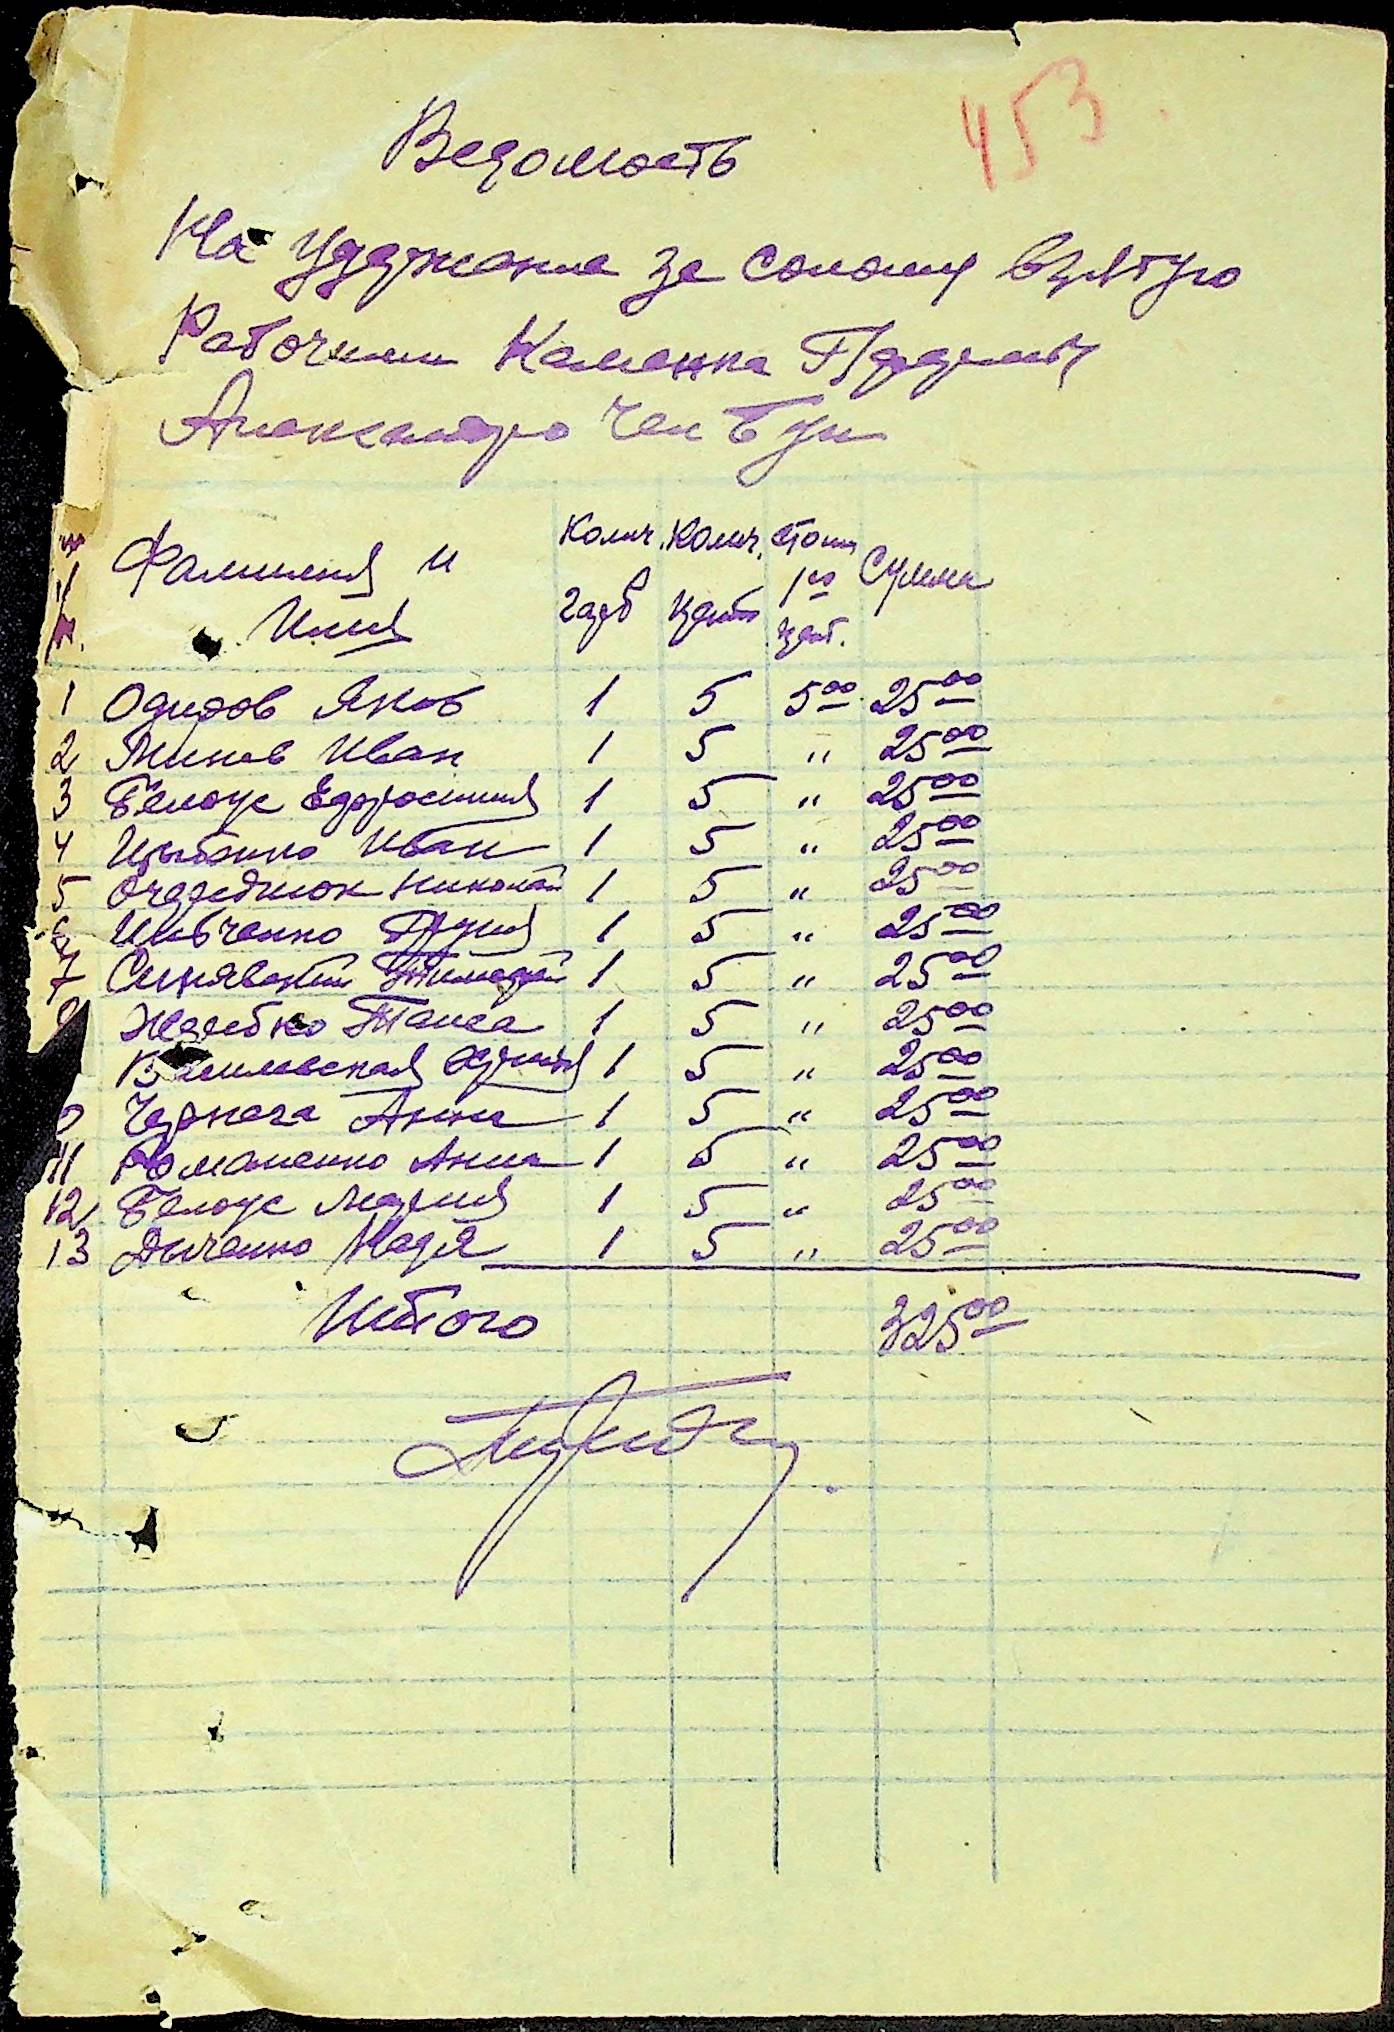 453
Ведомость
На удержание за солому взятую
Рабочими Каменка
Фамилия и Имя Колич. гарб Колич. цент стоим 1го цент. Сумма
1 Одисов Яков 1 5 5 00 25 00
2 Минов Иван 1 5 " 25 00
3 Белоус Ефросиния 1 5 " 25 00
4 Цыбенко Иван 1 5 " 25 00
5 Очереднюк Николай 1 5 " 25 00
Шевченко 1 5 " 25 00
7 Синявский Тимофей 1 5 " 25 00
Жеребко Таиса 1 5 " 25 00
1 5 " 25 00
Чернега Анна 1 5 " 25 00
11 Романенко Анна 1 5 " 25 00
12 Белоус Мария 1 5 " 25 00
13 Дяченко Надя 1 5 " 25 00
Итого 325 00